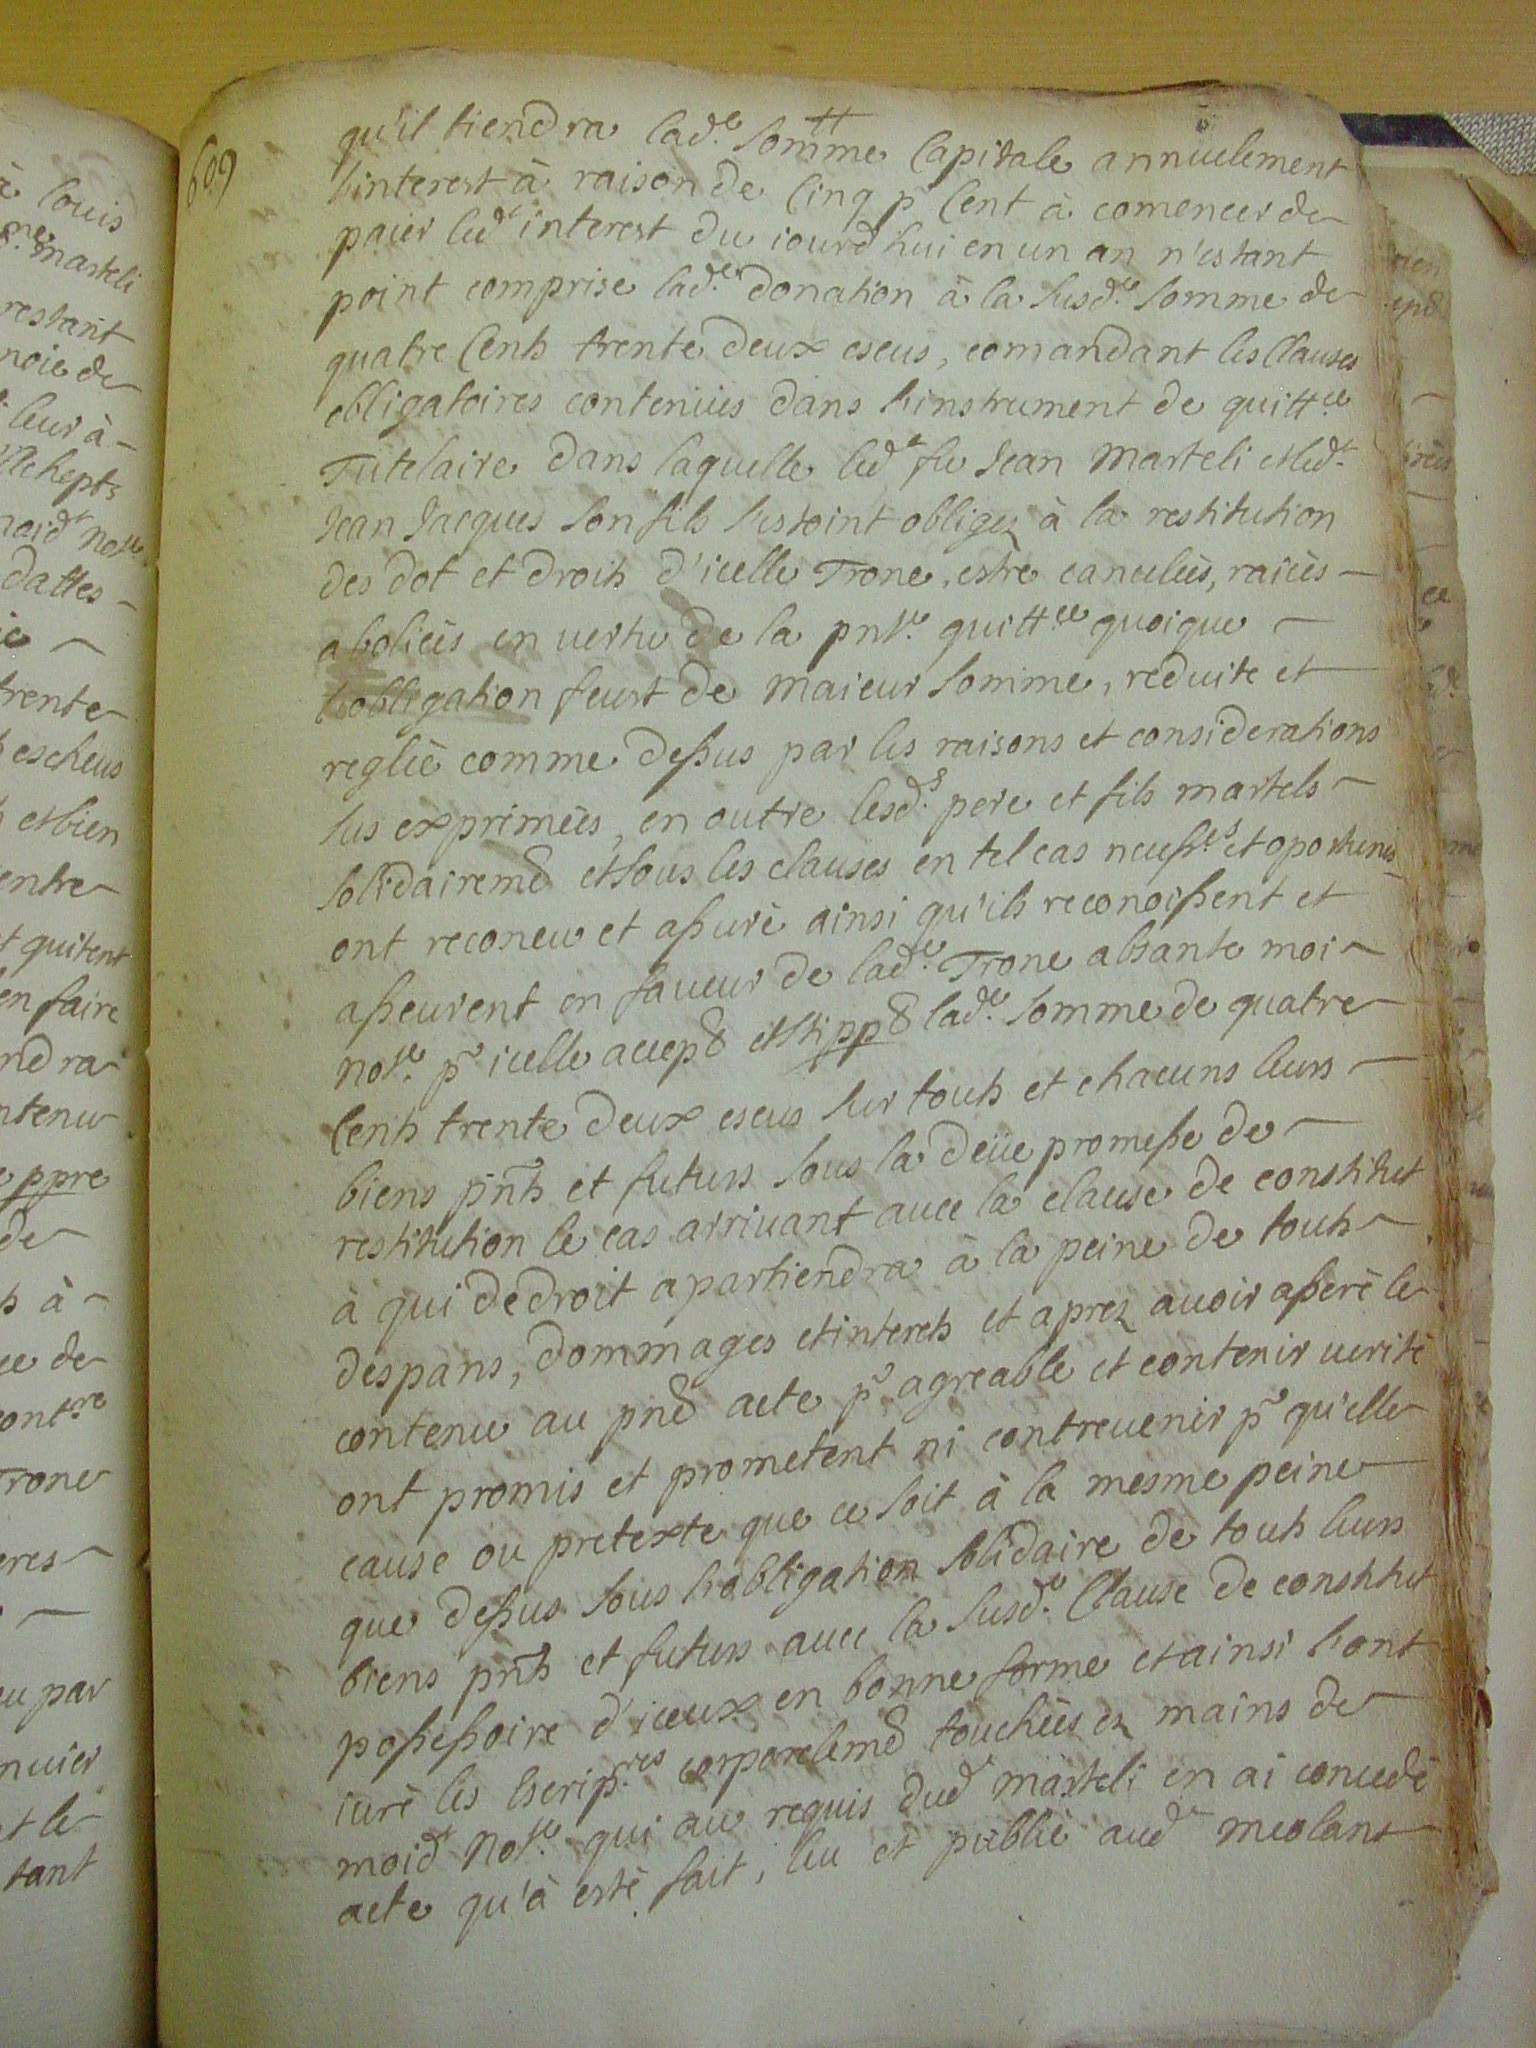 609
qu'il tiendra lad.e somme Capitale annuelement
l'interest à raison de Cinq p.r Cent à comencer de
paier led.t interest du iourd'hui en un an n'estant
point comprise lad.e donation à la susd.e somme de
quatre Cents trente deux escus, comandant les Clauses
obligatoires contenües dans l'instrument de quitt.ce
Tutelaire dans laquelle led.t fu Jean Marteli et led.t
Jean Jacques son fils s'estoint obligez à la restitution
des dot et droits d'icelle Trone, estre cancelées, raiées
aboliées en vertu de la pnt.e quitt.ce quoique
l'obligation feust de maieur somme, reduite et
regliè comme dessus par les raisons et considerations
sus exprimées, en outre lesd.s pere et fils martels
solidairemd et sous les clauses en tel cas necess.es et oportunes
ont reconeu et assurè ainsi qu'ils reconoissent et
asseurent en faveur de lad.e Trone absante moi
not.e p.r icelle accepd et stippd lad.e somme de quatre
Cents trente deux escus sur touts et chacuns leurs
biens pnts et futurs sous la deüe promesse de
restitution le cas arrivant avec la clause de constitut
à qui de droit apartiendra à la peine de touts
despans, dommages et interets et aprez avoir asserè le
contenu au pnd acte p.r agreable et contenir veritè
ont promis et prometent ni contrevenir p.r qu'elle
cause ou pretexte que ce soit à la mesme peine
que dessus sous l'obligation solidaire de touts leurs
biens pnts et futurs avec la susd.e Clause de constitut
possessoire d'iceux en bonne forme et ainsi l'ont
iurè les escrip.res corporelemd touchées ez mains de
moid.t not.e qui au requis dud.t marteli en ai concedè
acte qu'à estè fait, leu et publiè aud.t meolans
à Louis
marteli
restant
noie de
leur à
dattes
trente
escheus
et bien
entre
quitent
en faire
ndra
ntenu
ppre
de
à
ce de
cont.re
Trone
eres
u par
nvier
t le
tant